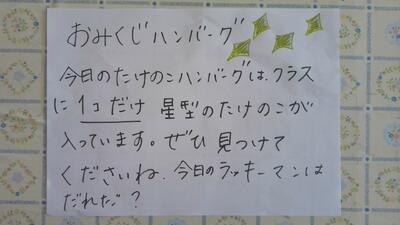 おみくじハンバーグ
今日のたけのこハンバーグは、クラス
に1コだけ 星型のたけのこが
入っています。ぜひ見つけて
くださいね。今日のラッキーマンは
だれだ？